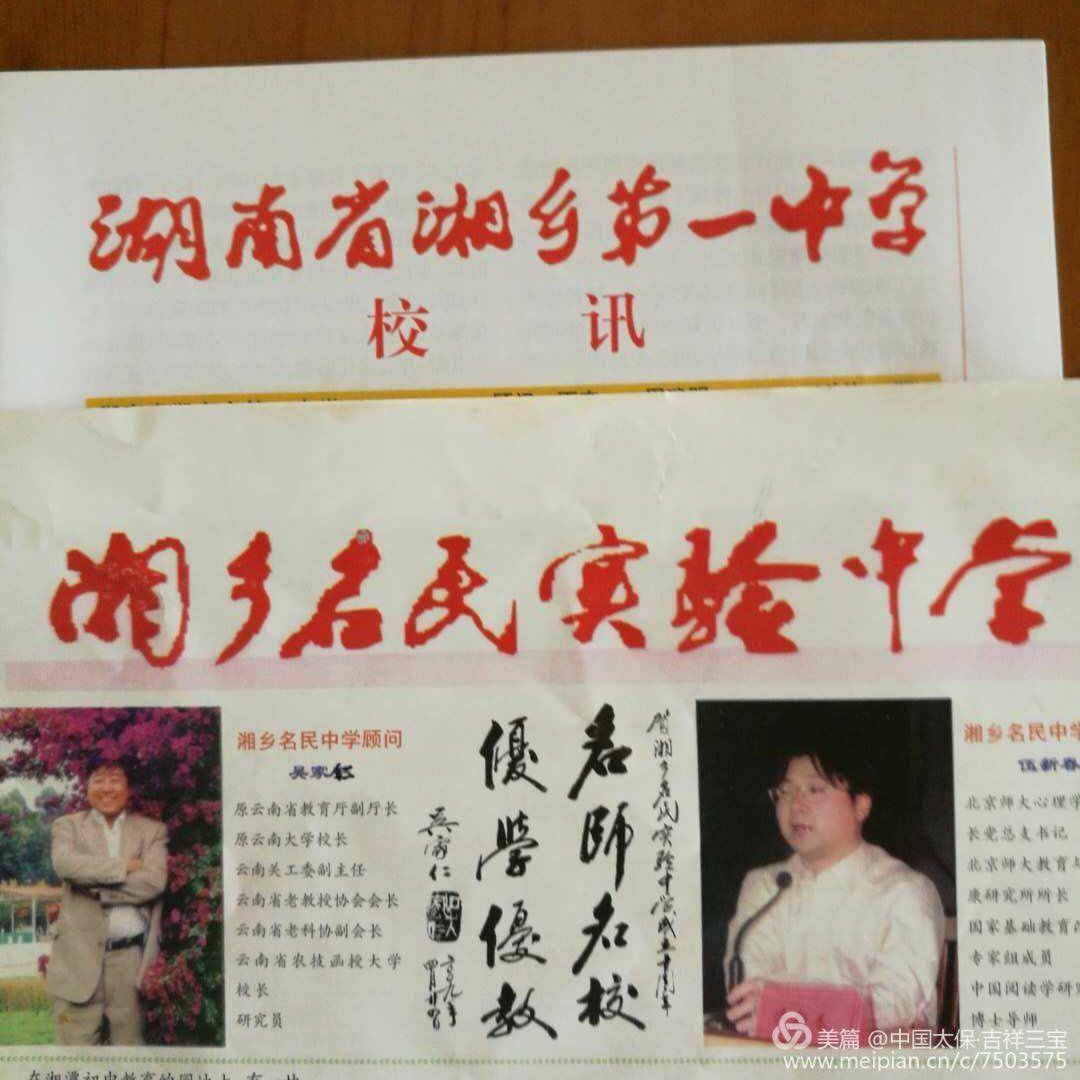 湖南省湘乡第一中学
校 讯
湘乡名民实验中学
湘乡名民中学顾问
吴家
原云南省教育厅副厅长
原云南大学校长
云南关工委副主任
云南省老教授协会会长
云南省老科协副会长
云南省农技函授大学
校长
研究员
贺湘乡名民实验中学成立十周年
名师名校
優学優教
湘乡名民中学
伍新春
北京师大心理学
长党总支书记
北京师大教育与
康研究所所长
国家基础教育
专家组成员
中国阅读学研究
博士导师
美篇 @中国太保·吉祥三宝
www.meipian.cn/c/7503575